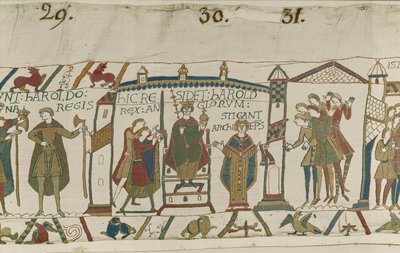 29. 30. 31.
VNT: hAROLDO:
NA REGIS
hIC RE SIDET: hAROLD
REX: AN GLORVM:
STIGANT
ARChIEPS
ISTI